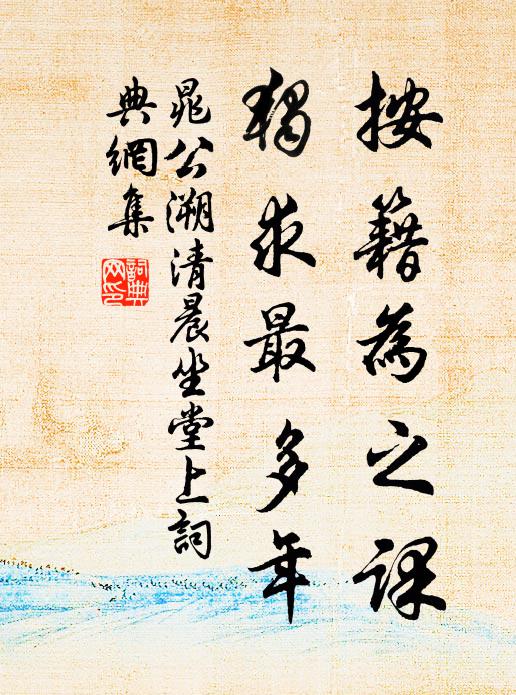 按籍為之課
獨求最多年
晁公溯清晨坐堂上詞
典網集
詞典
网印